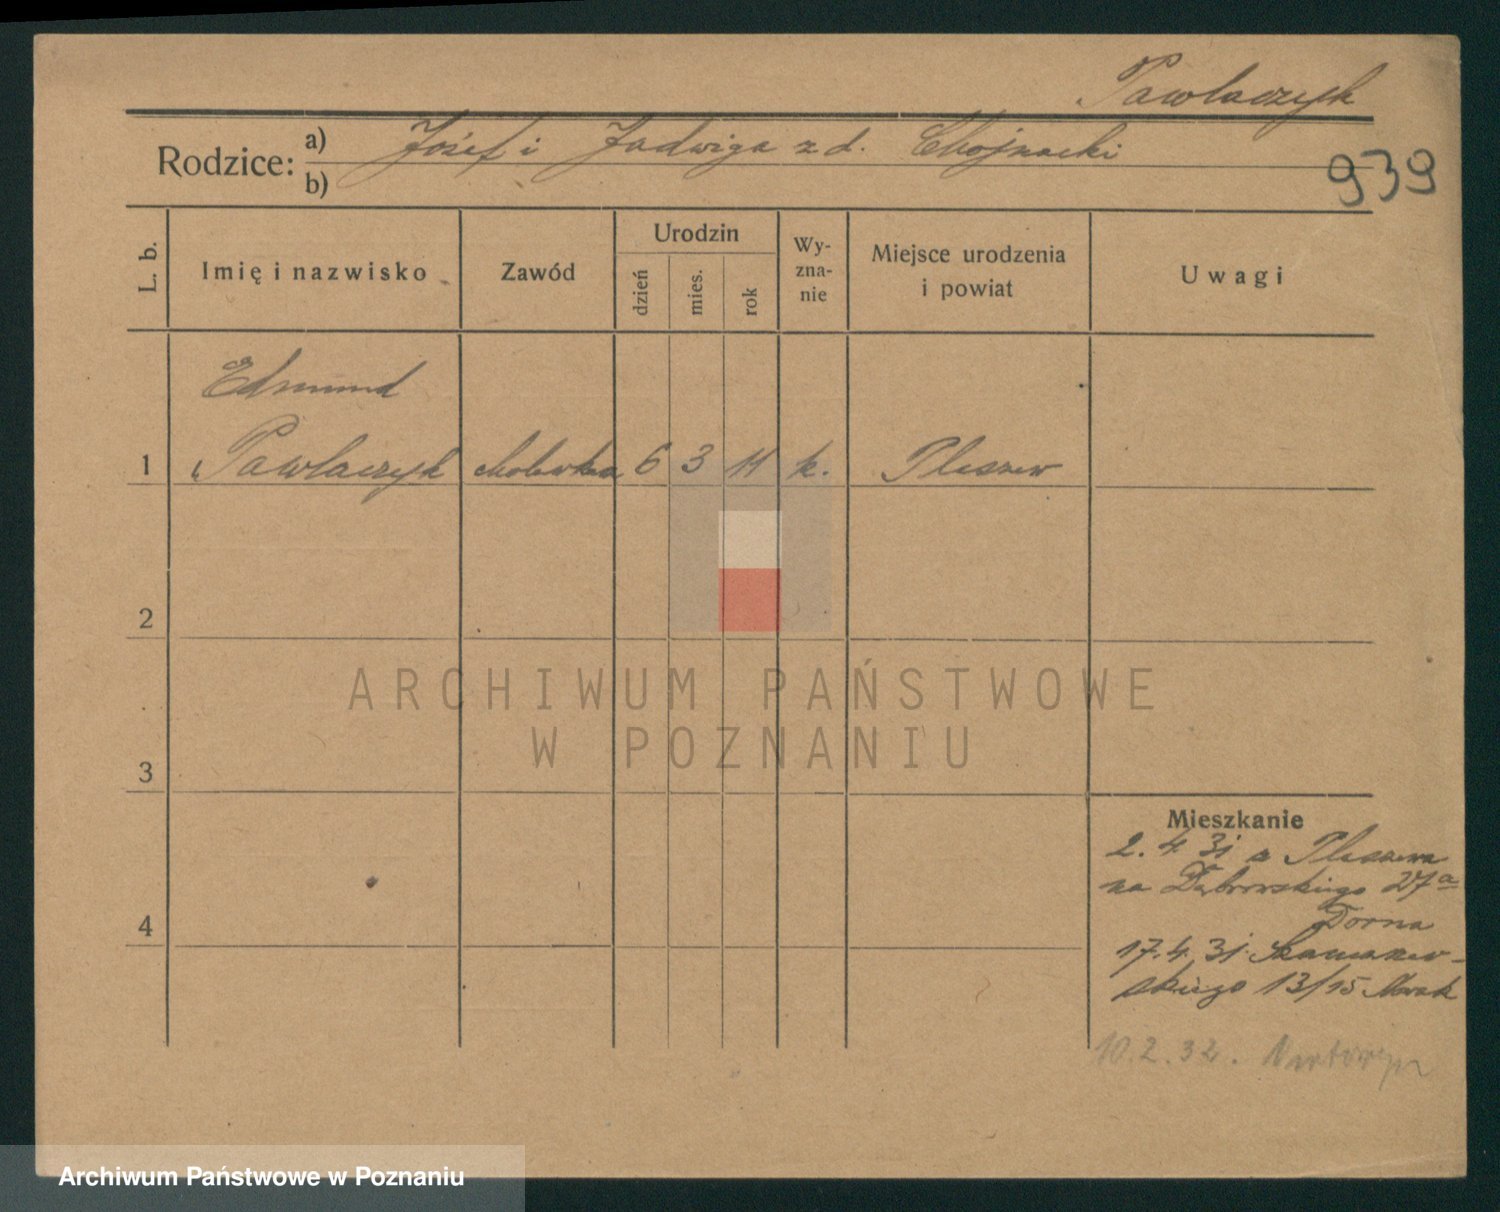 Pawlaczyk
Rodzice: a) Józef i Jadwiga z d. Chojnacki
b)
939
L. b.
Imię i nazwisko
Zawód
Urodzin
dzień
mies.
rok
Wy-
zna-
nie
Miejsce urodzenia
i powiat
Uwagi
Edmund
1 Pawlaczyk 6 3 11 k. Pleszew
2
3
4
ARCHIWUM PAŃSTWOWE
W POZNANIU
Mieszkanie
2.4.31 z Pleszewa
na Dąbrowskiego 27a
Dorna
17.4.31. Szamarzew-
skiego 13/15 Nowak
10.2.32.
Archiwum Państwowe w Poznaniu